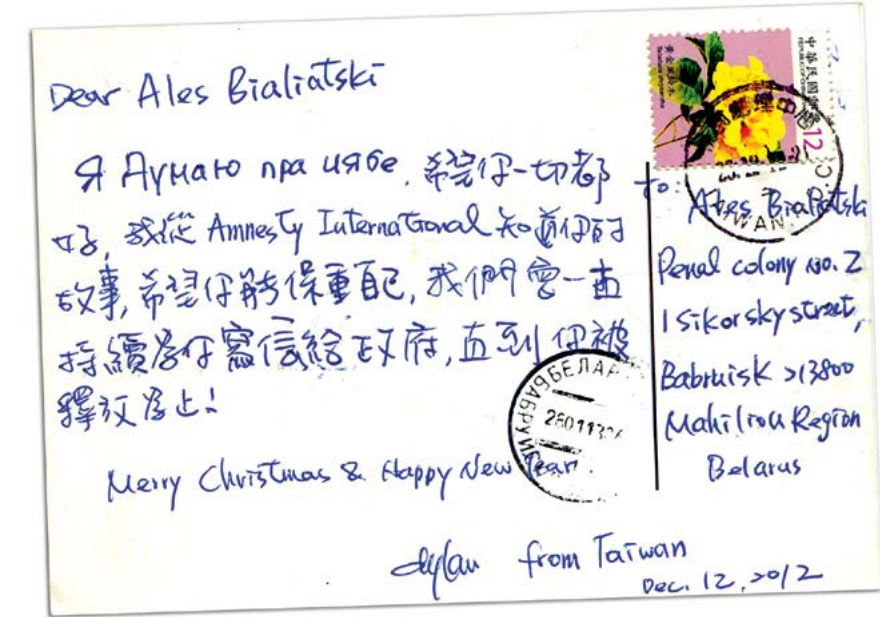 Dear Ales Bialiatski
Я Думаю пра цябе, 希望你一切都
好, 我從 Amnesty International 知道你的
故事, 希望你能保重自己, 我們會一直
持續為你寫信給政府, 直到你被
釋放為止!
Merry Christmas & Happy New Year.
dylan from Taiwan
Dec. 12, 2012
to:
Ales Bialiatski
Penal colony no. 2
1 Sikorsky street,
Babruisk 213800
Mahiliou Region
Belarus
中華民國郵票
REPUBLIC OF CHINA
12
TAIWAN
R.O.C
БЕЛАР
БАБРУЙ
280113